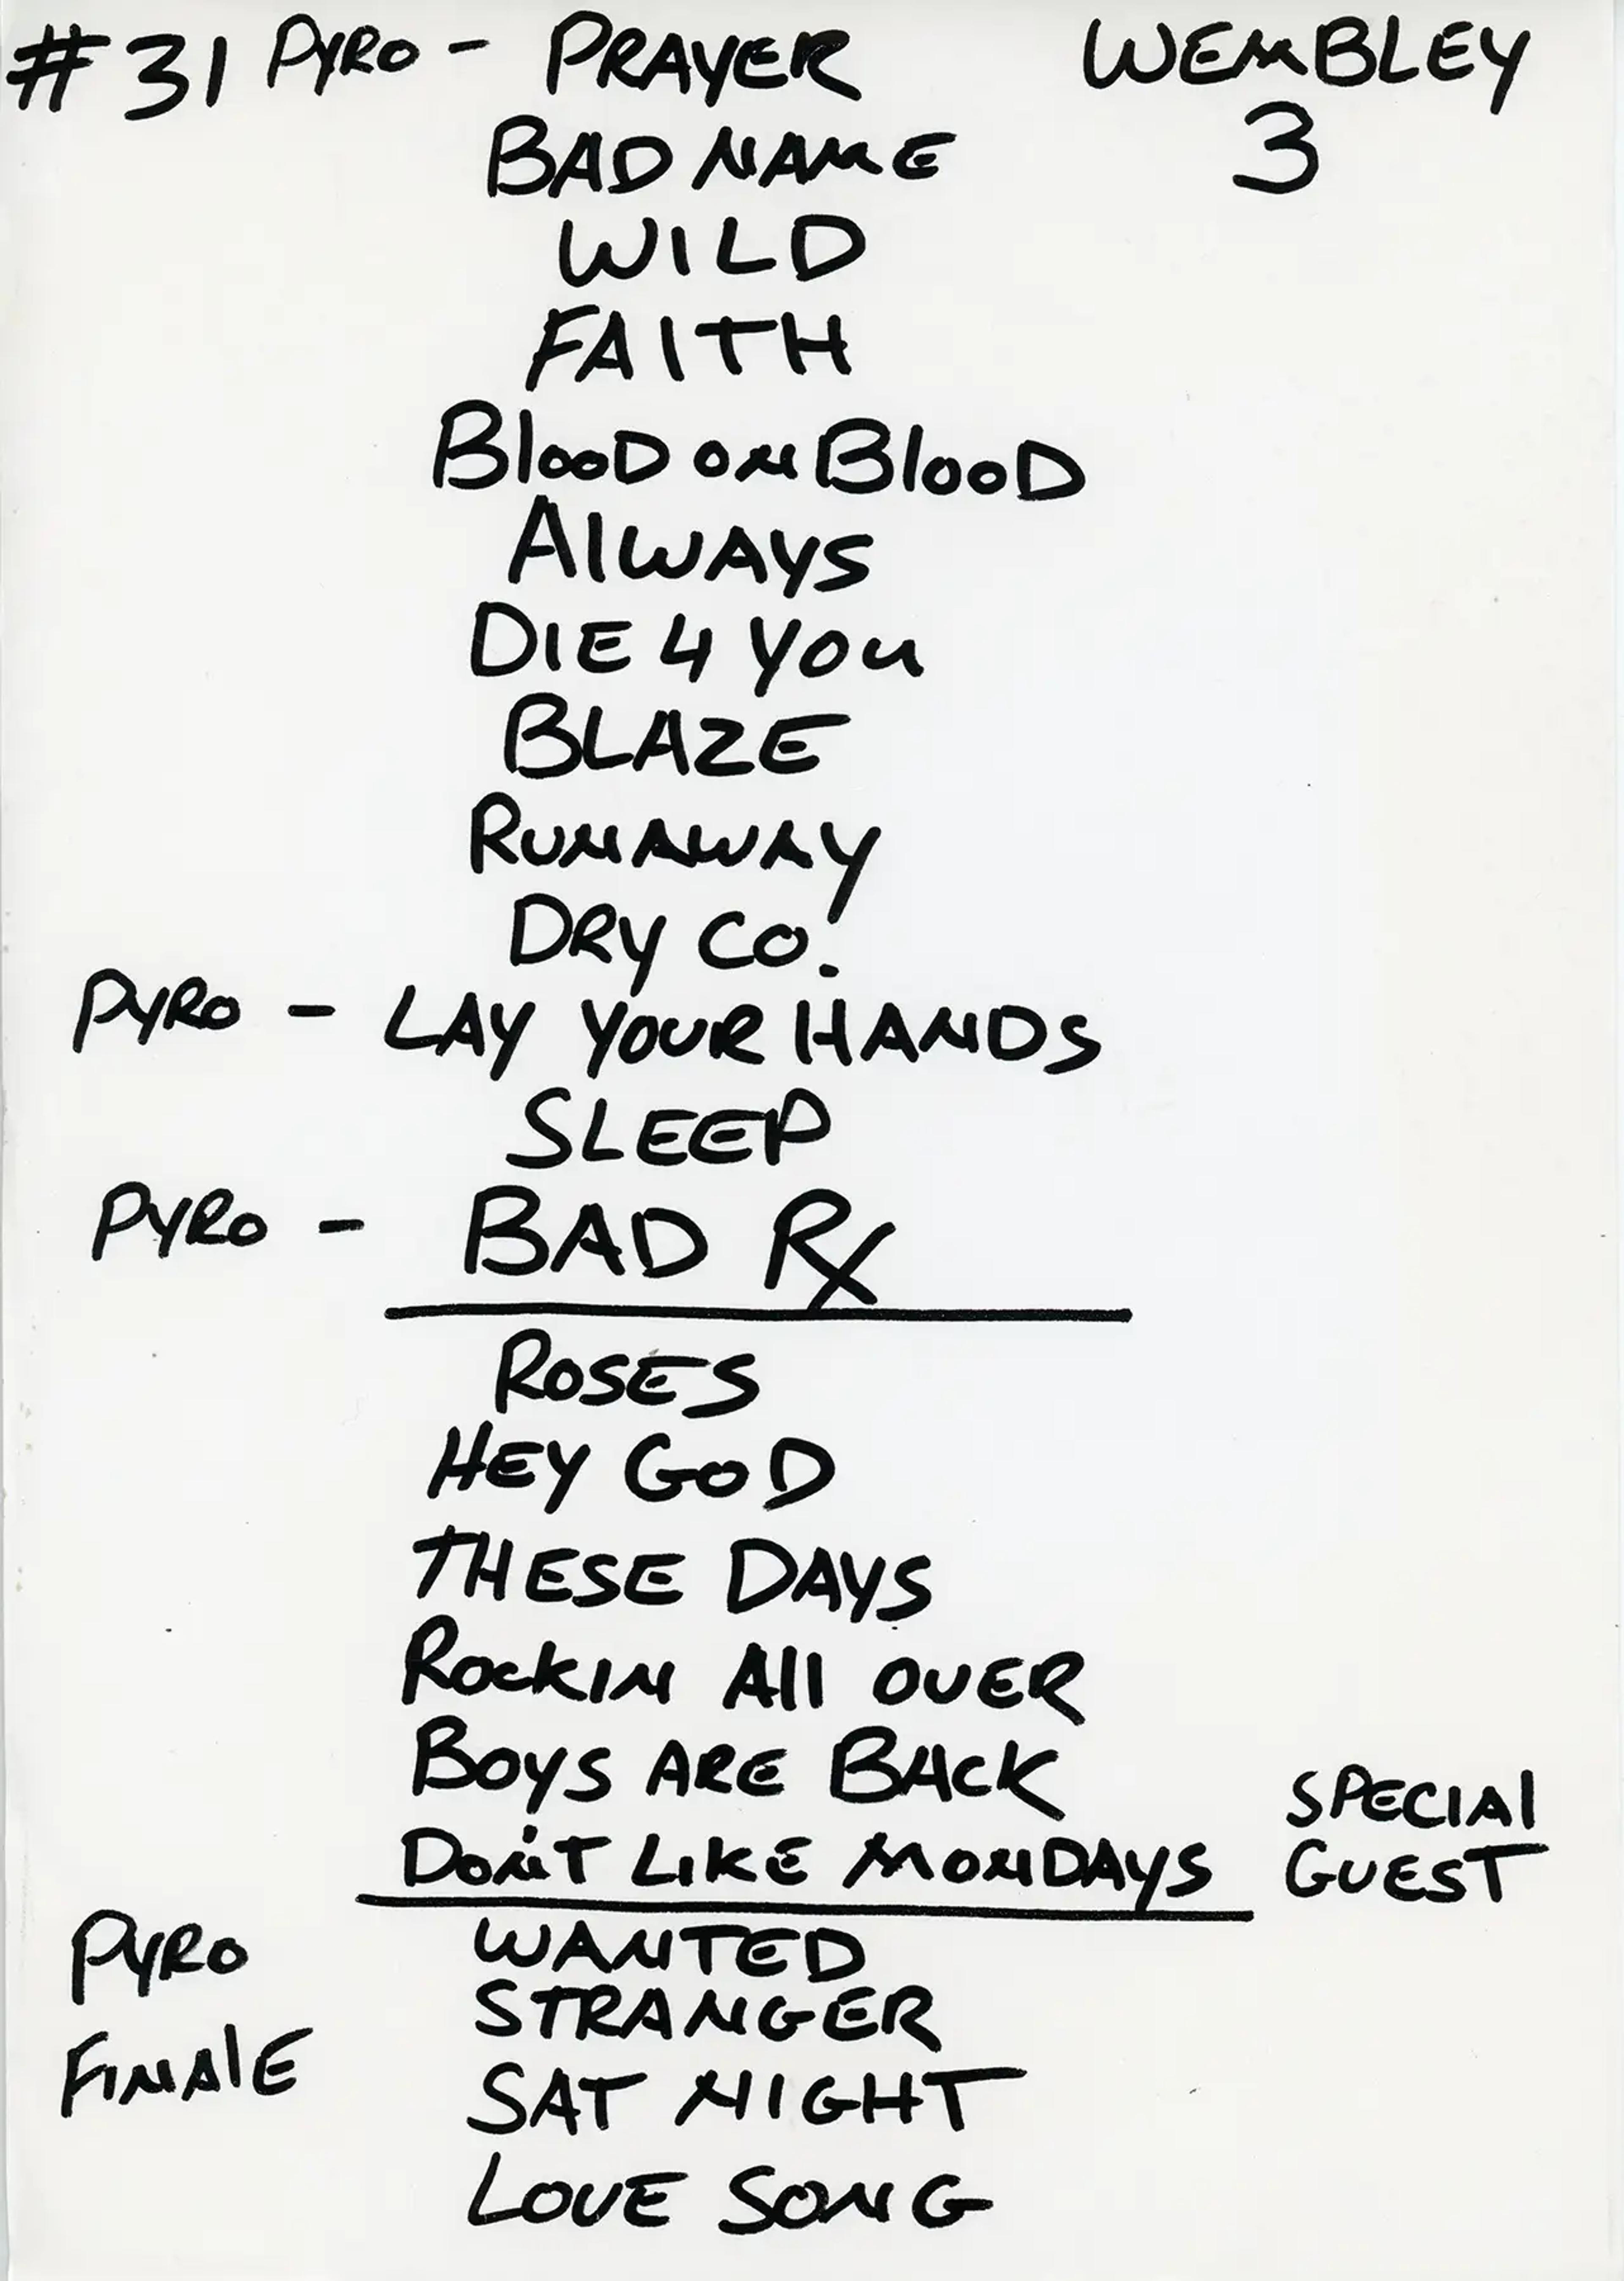 #31 PYRO - PRAYER WEMBLEY
3
BAD NAME
WILD
FAITH
BlooD on BlooD
AlWAYS
DIE 4 YOU
BLAZE
RUNAWAY
DRY CO.
PYRO - LAY YOUR HANDS
SLEEP
PYRO - BAD Rx
ROSES
HEY GOD
THESE DAYS
ROCKIN All OVER
BOYS ARE BACK
DON'T LIKE MONDAYS
SPECIAl
GUEST
PYRO
FINAlE
WANTED
STRANGER
SAT NIGHT
LOVE SONG